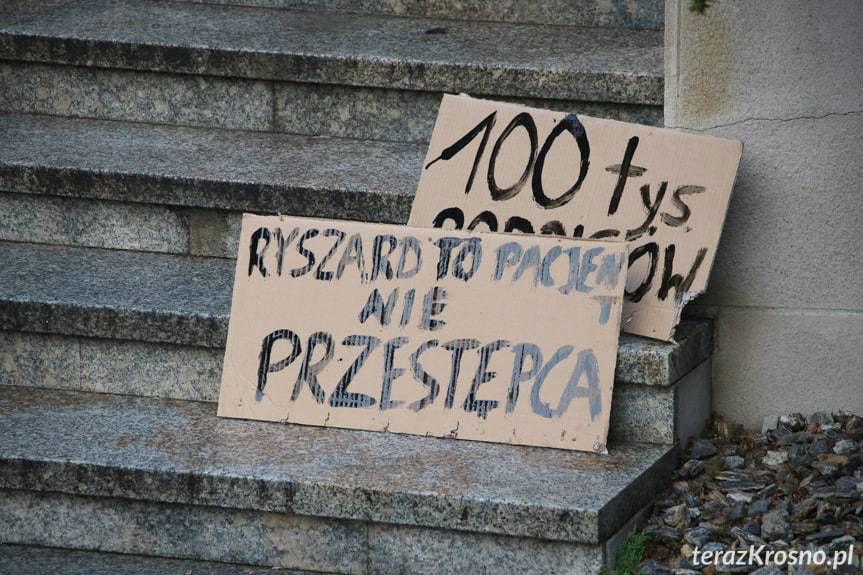 100 tys
RYSZARD TO PACJENT
NIE
PRZESTĘPCA
terazKrosno.pl